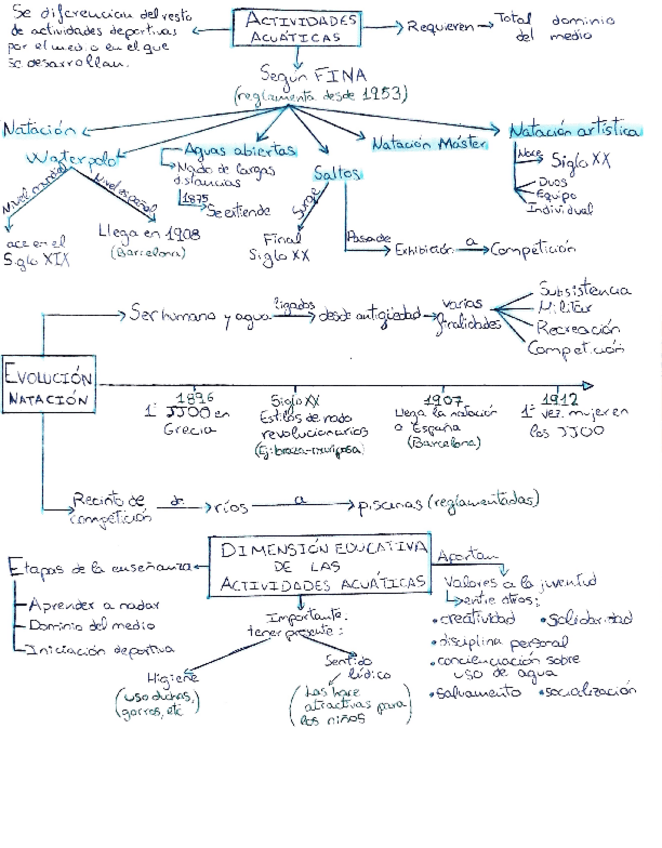 Se diferencian del resto
de actividades deportivas
por el medio en el que
se desarrollan.
ACTIVIDADES
ACUÁTICAS
Requieren
Total dominio
del medio
Según FINA
(reglamenta desde 1953)
Natación
Waterpolo
Nivel mundial
Nivel español
ace en el
Siglo XIX
Llega en 1908
(Barcelona)
Aguas abiertas
Nado de largas
distancias
1875
Se extiende
Saltos
Surge
Final
Siglo XX
Pasa de
Exhibición
a
Competición
Natación Máster
Natación artística
Nace
Siglo XX
Duos
Equipo
Individual
EVOLUCIÓN
NATACIÓN
Ser humano y agua
ligados
desde antigüedad
varias
finalidades
Subsistencia
Militar
Recreación
Competición
1896
1º JJOO en
Grecia
Siglo XX
Estilos de nado
revolucionarios
(Ej: braza-mariposa)
1907
Llega la natación
a España
(Barcelona)
1912
1ª vez mujer en
los JJOO
Recinto de
competición
de
ríos
a
piscinas (reglamentadas)
DIMENSIÓN EDUCATIVA
DE LAS
ACTIVIDADES ACUÁTICAS
Etapas de la enseñanza
Aprender a nadar
Dominio del medio
Iniciación deportiva
Importante
tener presente:
Higiene
(uso duchas,
gorros, etc
Sentido
lúdico
Las hace
atractivas para
los niños
Aportan
Valores a la juventud
entre otros:
•creatividad •solidaridad
•disciplina personal
•concienciación sobre
uso de agua
•salvamento •socialización